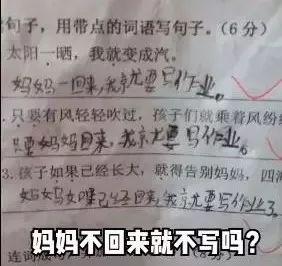 句子，用带点的词语写句子。(6分)
太阳一晒，我就变成汽。
妈妈一回来，我就要写作业。
.只要有风轻轻吹过，孩子们就乘着风纷
只要妈妈回来，我就要写作业。
3.孩子如果已经长大，就得告别妈妈，四海
妈妈如果已经回来，我就要写作业了
妈妈不回来就不写吗？
连词成句